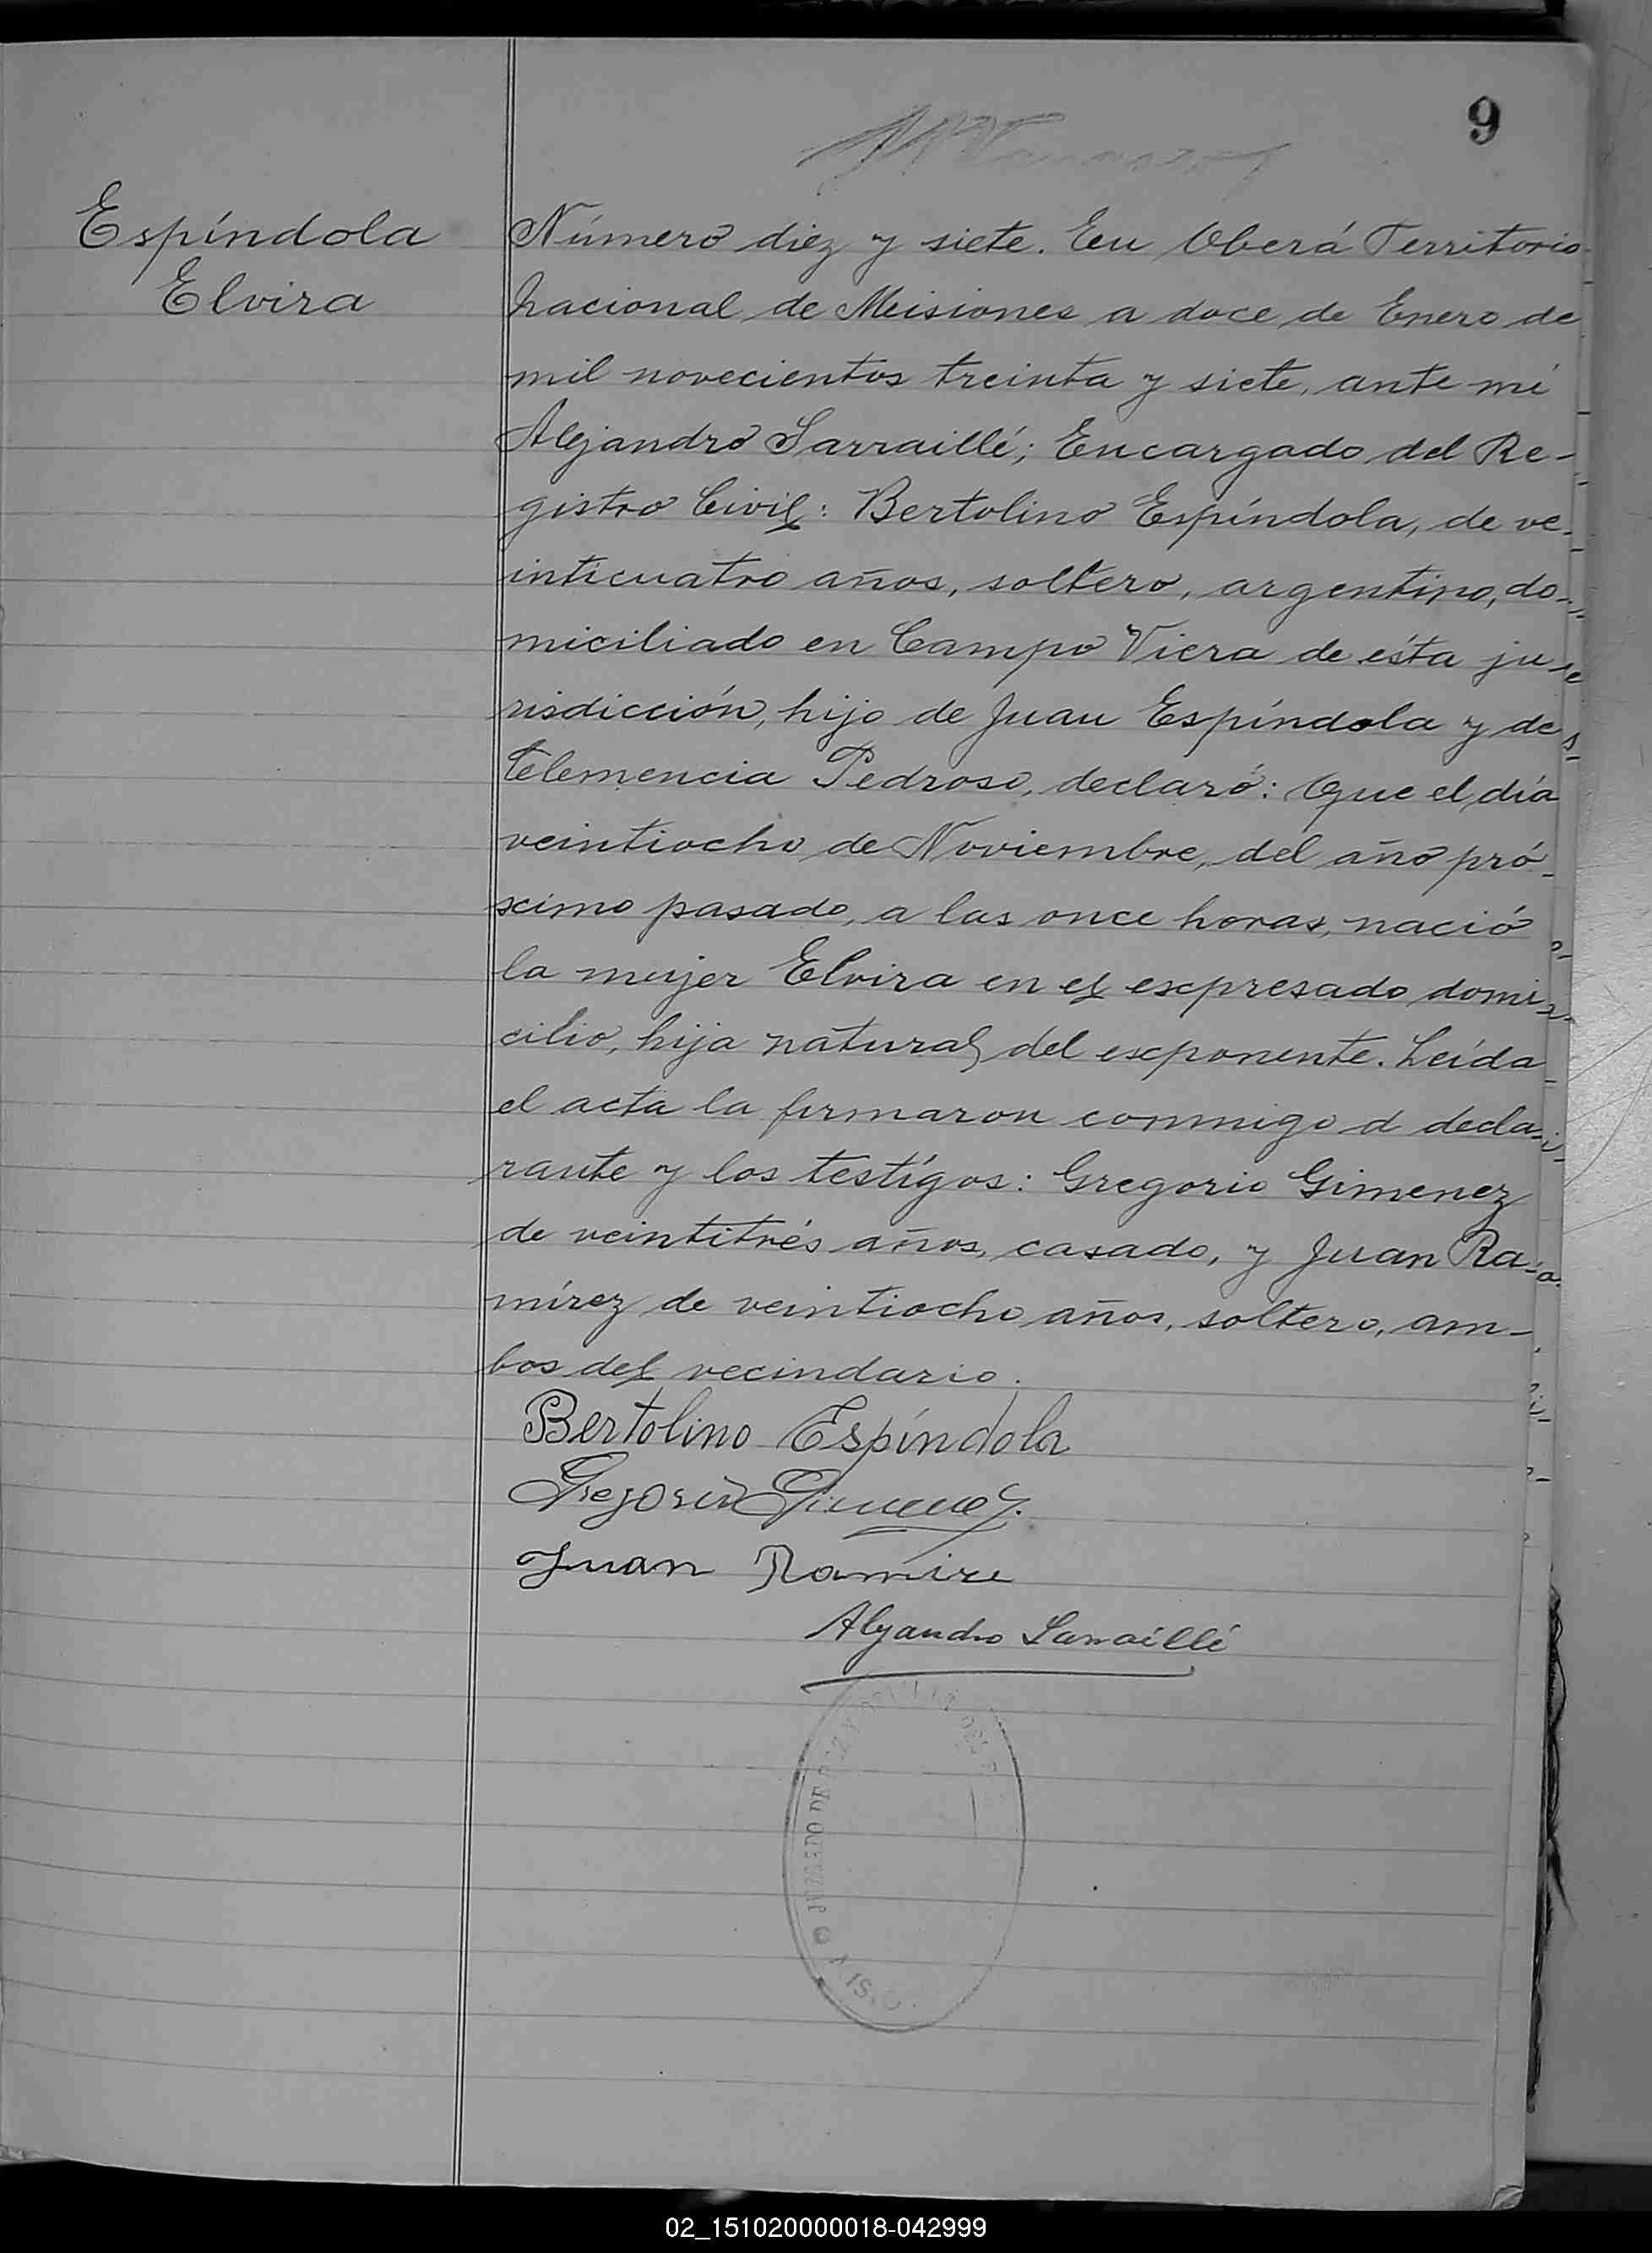 9
Espíndola
Elvira
Número diez y siete. En Oberá Territorio
Nacional de Misiones a doce de Enero de
mil novecientos treinta y siete, ante mí
Alejandro Sarraillé; Encargado del Re-
gistro Civil: Bertolino Espíndola, de ve-
inticuatro años, soltero, argentino, do-
miciliado en Campo Viera de ésta ju-
risdicción, hijo de Juan Espíndola y de
Telemencia Pedroso, declaró: Que el día
veintiocho de Noviembre, del año pró-
ximo pasado, a las once horas, nació
la mujer Elvira en el expresado domi-
cilio, hija natural del exponente. Leída
el acta la firmaron conmigo el decla-
rante y los testigos: Gregorio Gimenez
de veintitrés años, casado, y Juan Ra-
mírez de veintiocho años, soltero, am-
bos del vecindario.
Bertolino Espíndola
Gregorio Gimenez.
Juan Ramire
Alejandro Sarraillé
JUZGADO DE
02_151020000018-042999